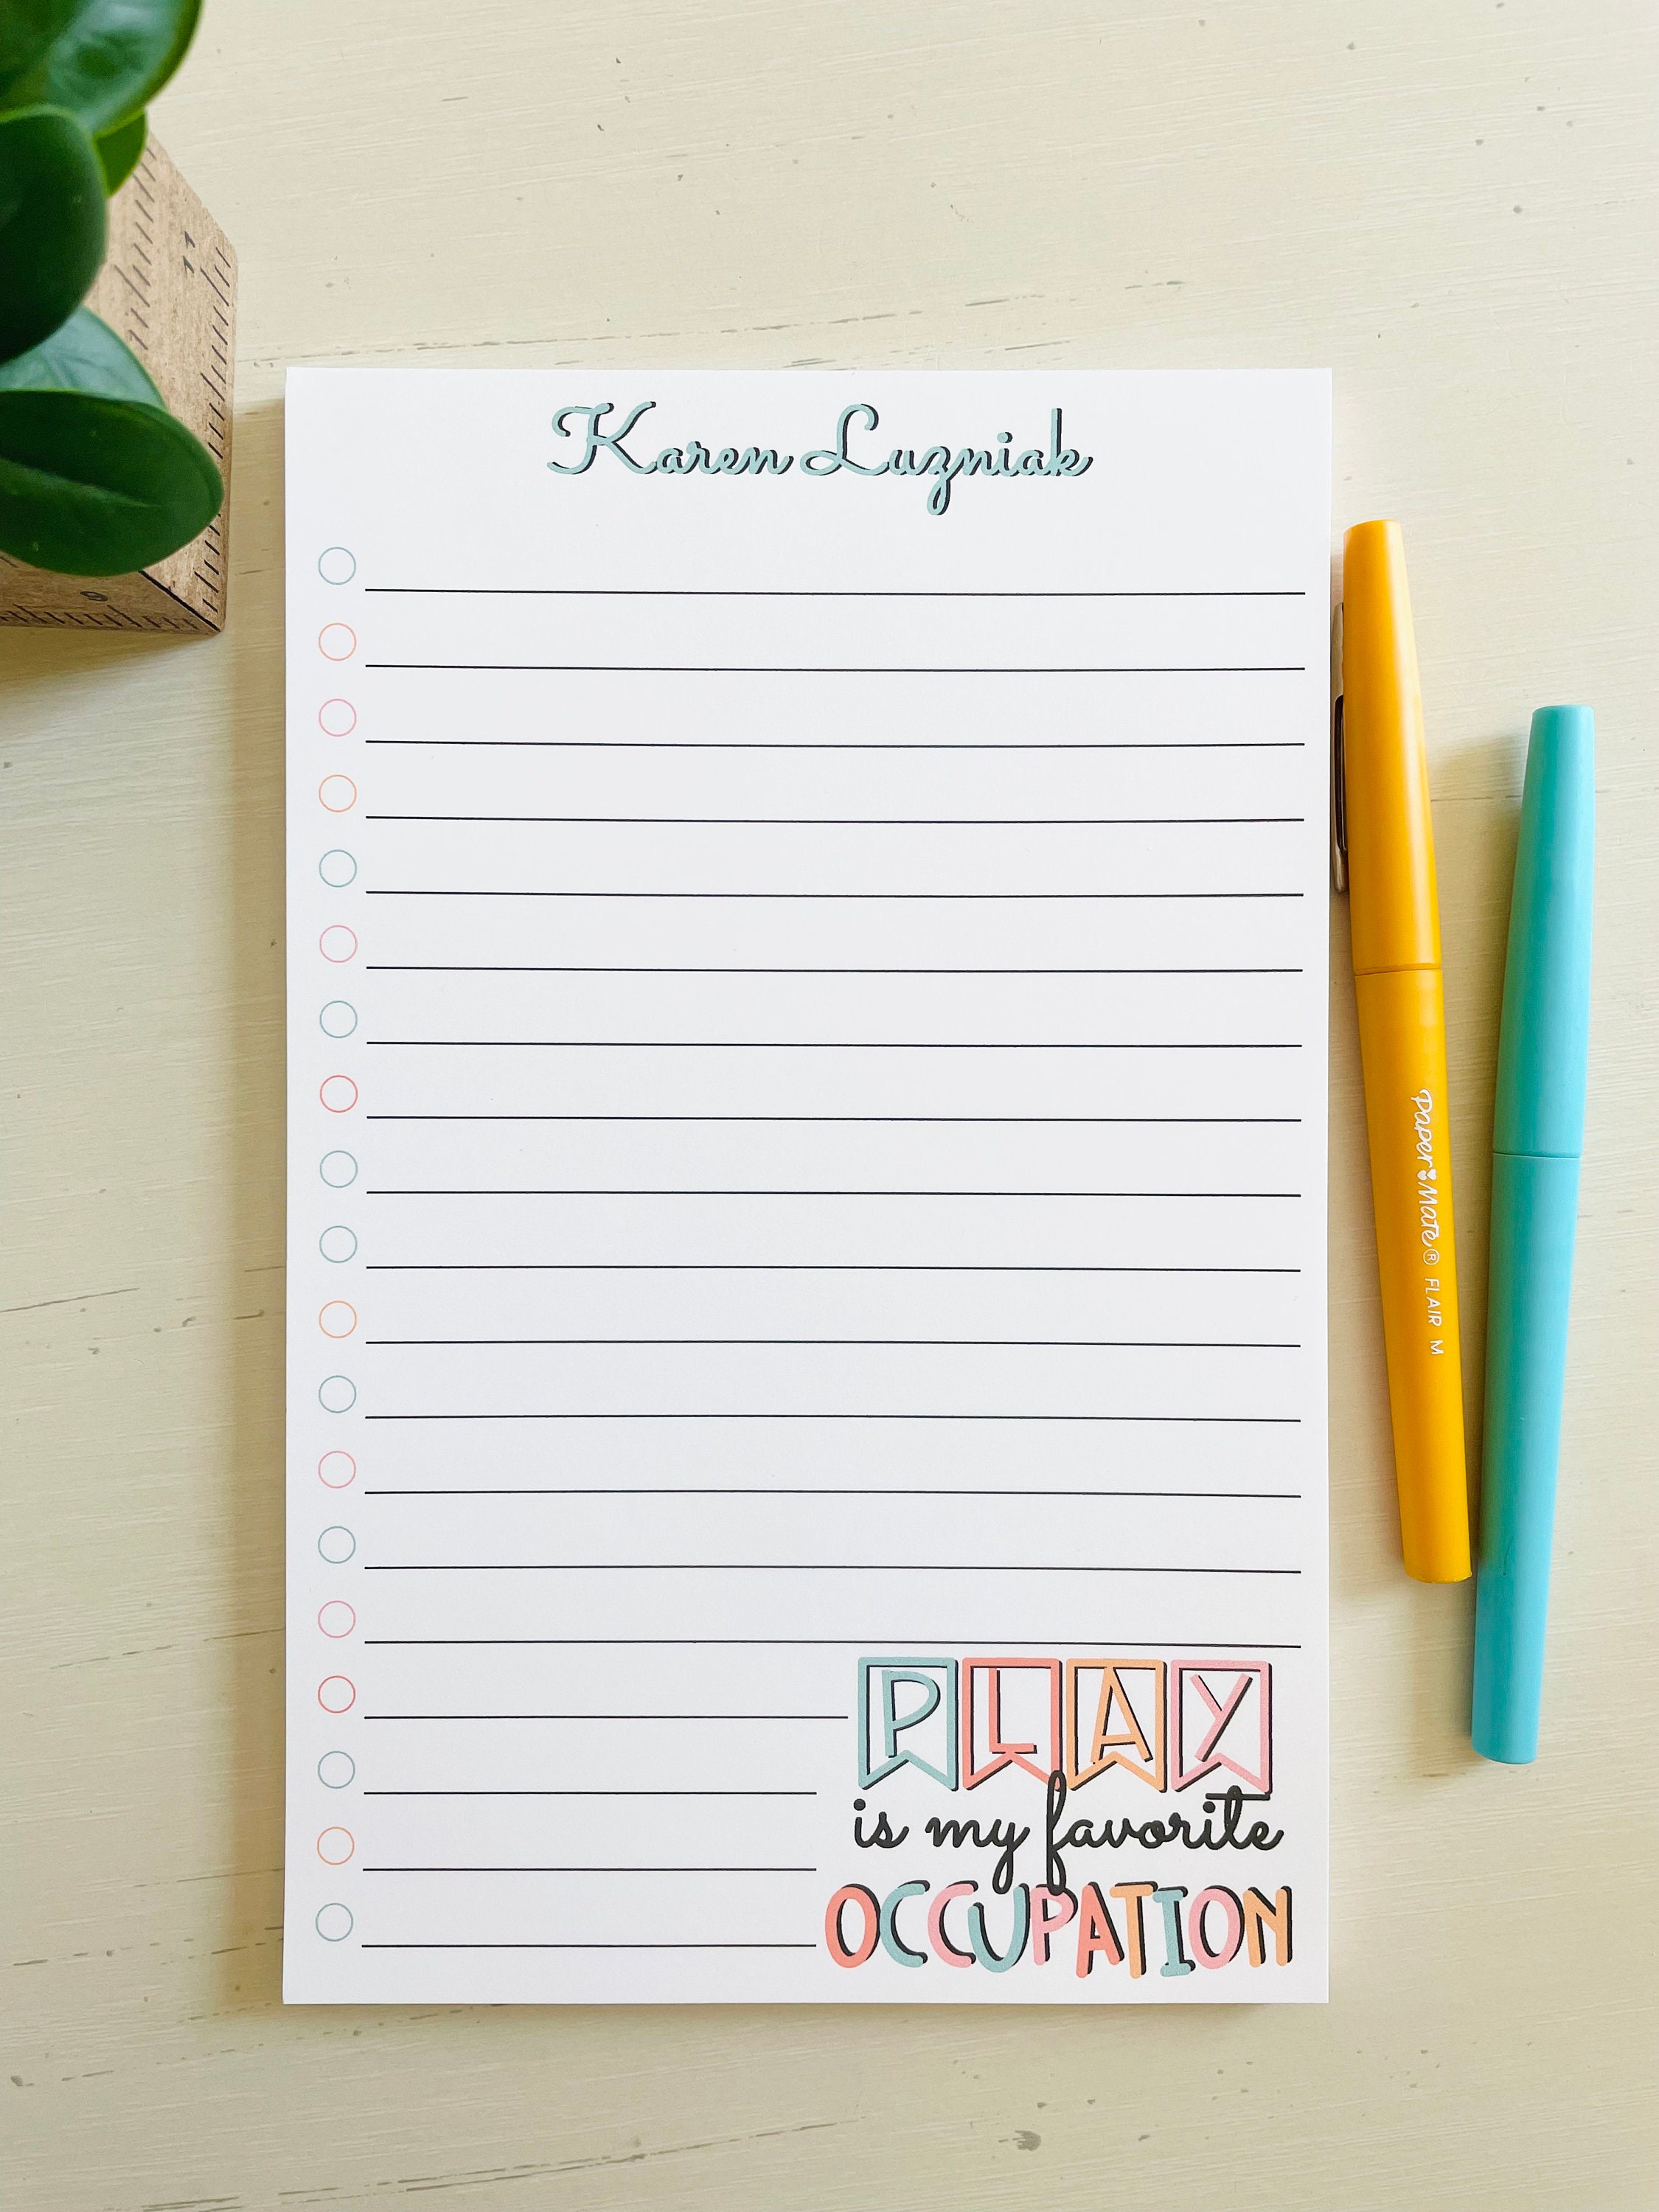 Karen Luzniak
PLAY
is my favorite
OCCUPATION
Paper Mate® FLAIR M
11